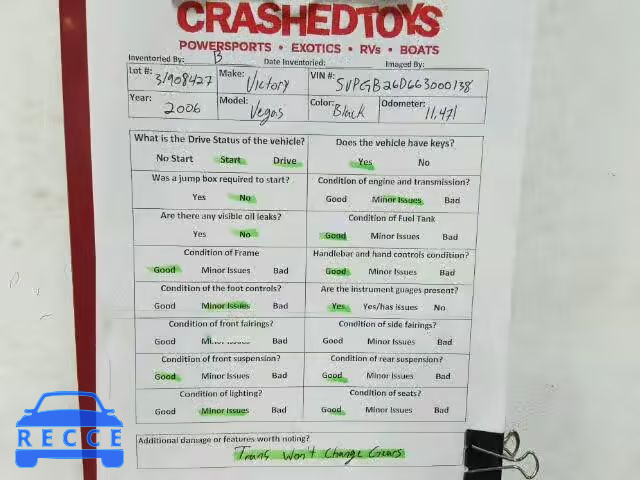 CRASHEDTOYS
POWERSPORTS • EXOTICS • RVs • BOATS
Inventoried By: B Date Inventoried: Imaged By:
Lot #: 31908427 Make: Victory VIN #: 5VPGB26D663000138
Year: 2006 Model: Vegas Color: Black Odometer: 11,471
What is the Drive Status of the vehicle? Does the vehicle have keys?
No Start Start Drive Yes No
Was a jump box required to start? Condition of engine and transmission?
Yes No Good Minor Issues Bad
Are there any visible oil leaks? Condition of Fuel Tank
Yes No Good Minor Issues Bad
Condition of Frame Handlebar and hand controls condition?
Good Minor Issues Bad Good Minor Issues Bad
Condition of the foot controls? Are the instrument guages present?
Good Minor Issues Bad Yes Yes/has issues No
Condition of front fairings? Condition of side fairings?
Good Minor Issues Bad Good Minor Issues Bad
Condition of front suspension? Condition of rear suspension?
Good Minor Issues Bad Good Minor Issues Bad
Condition of lighting? Condition of seats?
Good Minor Issues Bad Good Minor Issues Bad
Additional damage or features worth noting?
Trans Won't Change Gears
RECCE